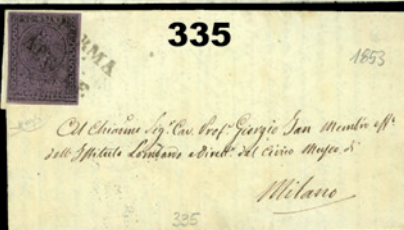 335
RMA
APR
1853
Al Chiarmo Sigr. Cav. Profr. Giorgio Jan Membro effo.
dell'Istituto Lombardo e Dirett. del Civico Museo di
Milano
335